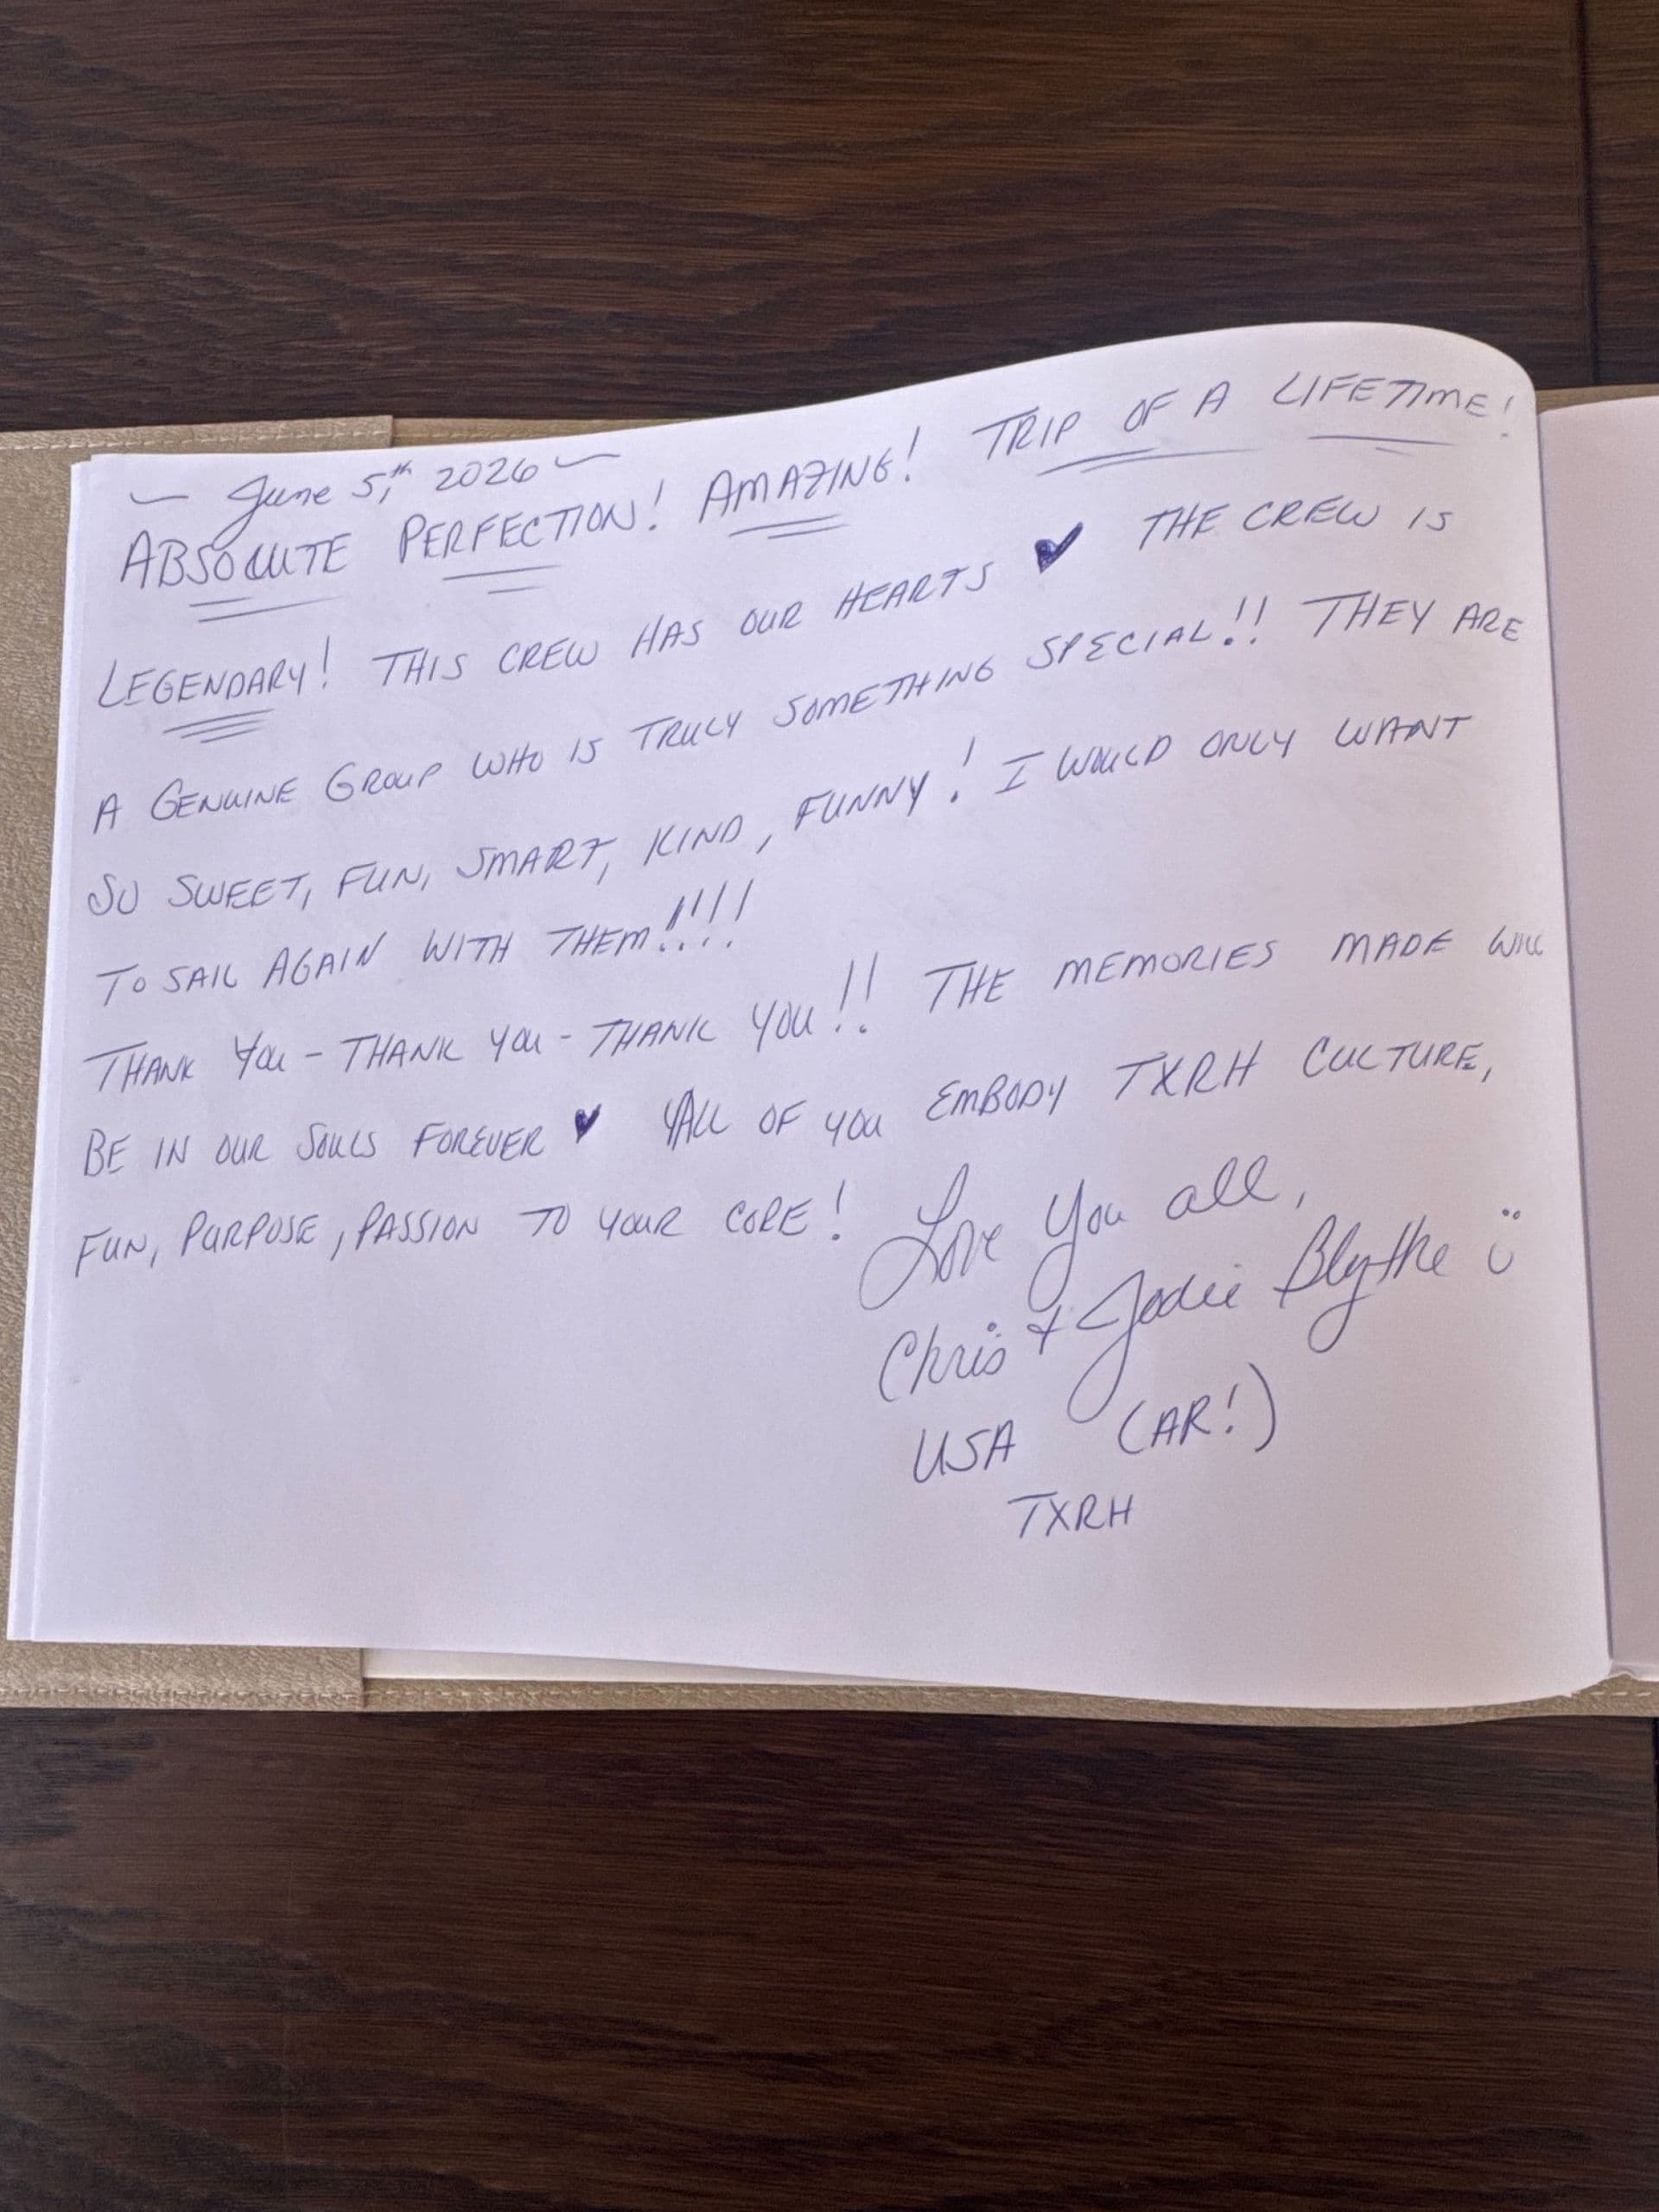 ~ June 5,th 2026 ~
ABSOLUTE PERFECTION! AMAZING! TRIP OF A LIFETIME!
LEGENDARY! THIS CREW HAS OUR HEARTS ♥ THE CREW IS
A GENUINE GROUP WHO IS TRULY SOMETHING SPECIAL!! THEY ARE
SO SWEET, FUN, SMART, KIND, FUNNY! I WOULD ONLY WANT
TO SAIL AGAIN WITH THEM!!!!
THANK YOU - THANK YOU - THANK YOU!! THE MEMORIES MADE WILL
BE IN OUR SOULS FOREVER ♥ YALL OF YOU EMBODY TXRH CULTURE,
FUN, PURPOSE, PASSION TO YOUR CORE!
Love You all,
Chris + Jodie Blythe ü
USA (AR!)
TXRH